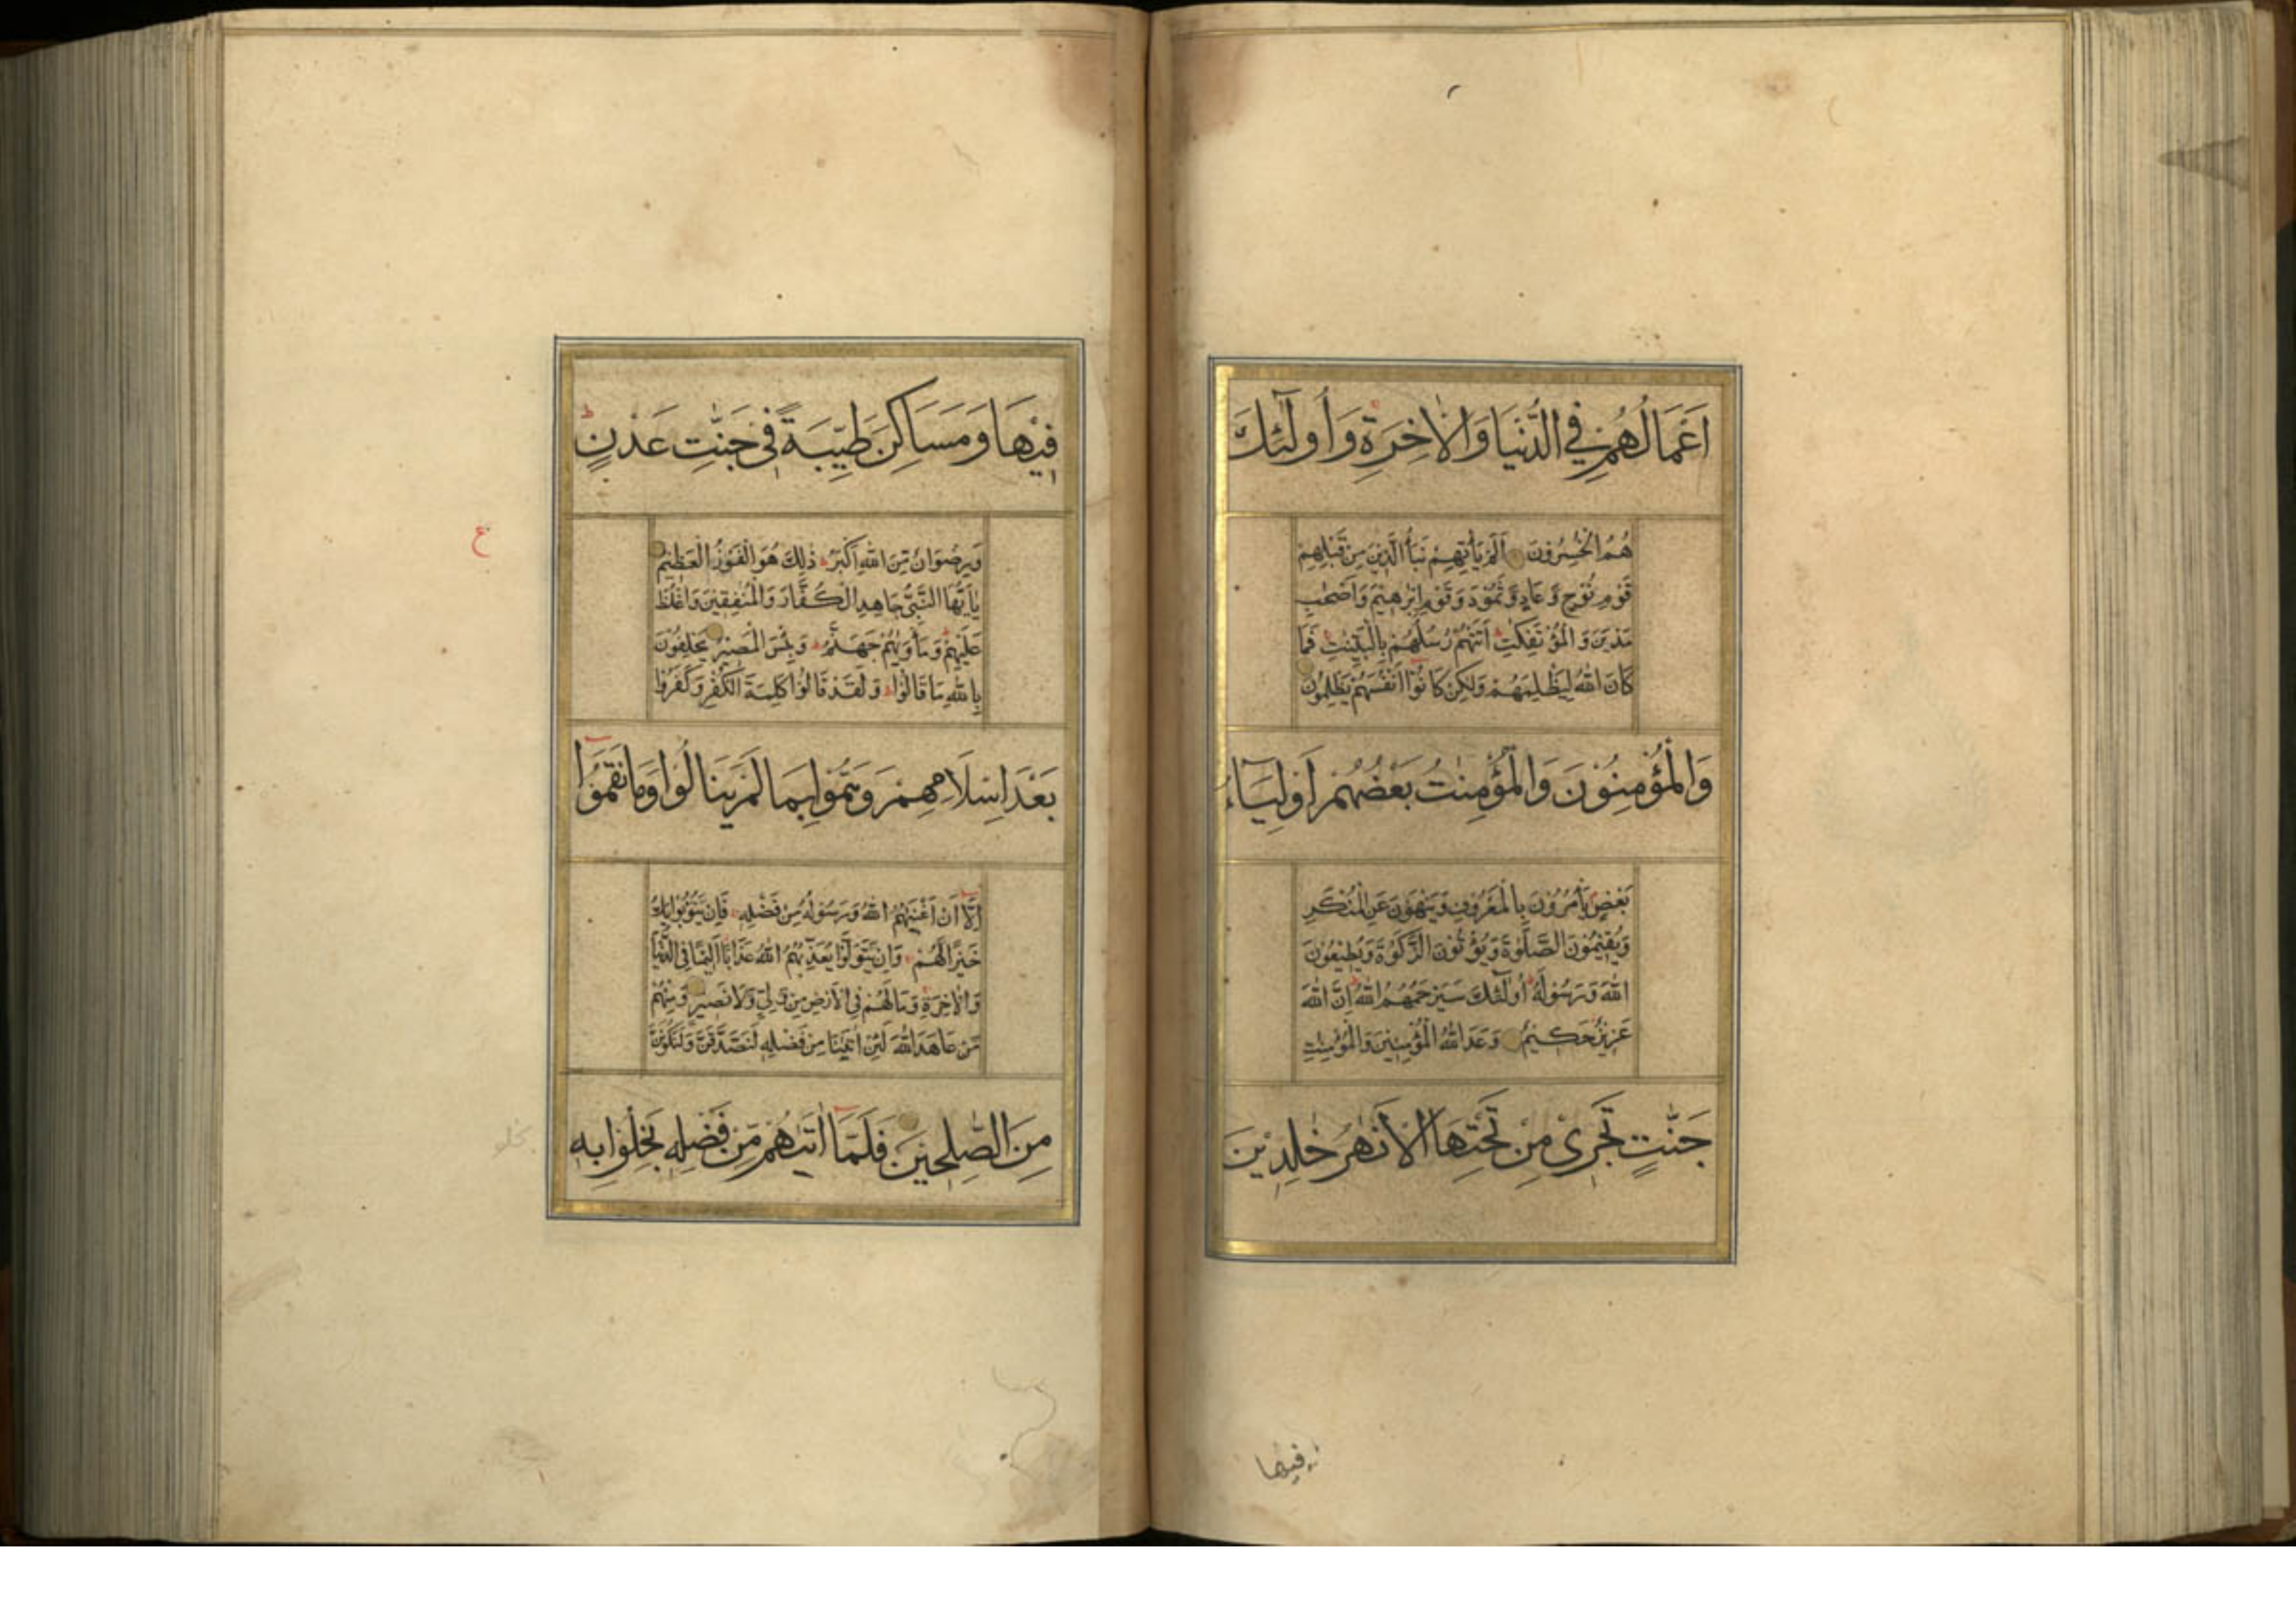 اَعْمَالُهُمْ فِي الدُّنْيَا وَالْاٰخِرَةِ وَاُولٰٓئِكَ
هُمُ الْخٰسِرُوْنَ اَلَمْ يَاْتِهِمْ نَبَاُ الَّذِيْنَ مِنْ قَبْلِهِمْ
قَوْمِ نُوْحٍ وَّعَادٍ وَّثَمُوْدَ وَقَوْمِ اِبْرٰهِيْمَ وَاَصْحٰبِ
مَدْيَنَ وَالْمُؤْتَفِكٰتِ اَتَتْهُمْ رُسُلُهُمْ بِالْبَيِّنٰتِ فَمَا
كَانَ اللّٰهُ لِيَظْلِمَهُمْ وَلٰكِنْ كَانُوْٓا اَنْفُسَهُمْ يَظْلِمُوْنَ
وَالْمُؤْمِنُوْنَ وَالْمُؤْمِنٰتُ بَعْضُهُمْ اَوْلِيَآءُ
بَعْضٍ يَاْمُرُوْنَ بِالْمَعْرُوْفِ وَيَنْهَوْنَ عَنِ الْمُنْكَرِ
وَيُقِيْمُوْنَ الصَّلٰوةَ وَيُؤْتُوْنَ الزَّكٰوةَ وَيُطِيْعُوْنَ
اللّٰهَ وَرَسُوْلَهٗ اُولٰٓئِكَ سَيَرْحَمُهُمُ اللّٰهُ اِنَّ اللّٰهَ
عَزِيْزٌ حَكِيْمٌ وَعَدَ اللّٰهُ الْمُؤْمِنِيْنَ وَالْمُؤْمِنٰتِ
جَنّٰتٍ تَجْرِيْ مِنْ تَحْتِهَا الْاَنْهٰرُ خٰلِدِيْنَ
فيها
فِيْهَا وَمَسَاكِنَ طَيِّبَةً فِيْ جَنّٰتِ عَدْنٍ ط
ع
وَرِضْوَانٌ مِّنَ اللّٰهِ اَكْبَرُ ذٰلِكَ هُوَ الْفَوْزُ الْعَظِيْمُ
يٰٓاَيُّهَا النَّبِيُّ جَاهِدِ الْكُفَّارَ وَالْمُنٰفِقِيْنَ وَاغْلُظْ
عَلَيْهِمْ وَمَاْوٰىهُمْ جَهَنَّمُ وَبِئْسَ الْمَصِيْرُ يَحْلِفُوْنَ
بِاللّٰهِ مَا قَالُوْا وَلَقَدْ قَالُوْا كَلِمَةَ الْكُفْرِ وَكَفَرُوْا
بَعْدَ اِسْلَامِهِمْ وَهَمُّوْا بِمَا لَمْ يَنَالُوْا وَمَا نَقَمُوْٓا
اِلَّآ اَنْ اَغْنٰىهُمُ اللّٰهُ وَرَسُوْلُهٗ مِنْ فَضْلِهٖ فَاِنْ يَّتُوْبُوْا يَكُ
خَيْرًا لَّهُمْ وَاِنْ يَّتَوَلَّوْا يُعَذِّبْهُمُ اللّٰهُ عَذَابًا اَلِيْمًا فِي الدُّنْيَا
وَالْاٰخِرَةِ وَمَا لَهُمْ فِي الْاَرْضِ مِنْ وَّلِيٍّ وَّلَا نَصِيْرٍ وَمِنْهُمْ
مَّنْ عَاهَدَ اللّٰهَ لَئِنْ اٰتٰىنَا مِنْ فَضْلِهٖ لَنَصَّدَّقَنَّ وَلَنَكُوْنَنَّ
مِنَ الصّٰلِحِيْنَ فَلَمَّآ اٰتٰىهُمْ مِّنْ فَضْلِهٖ بَخِلُوْا بِهٖ